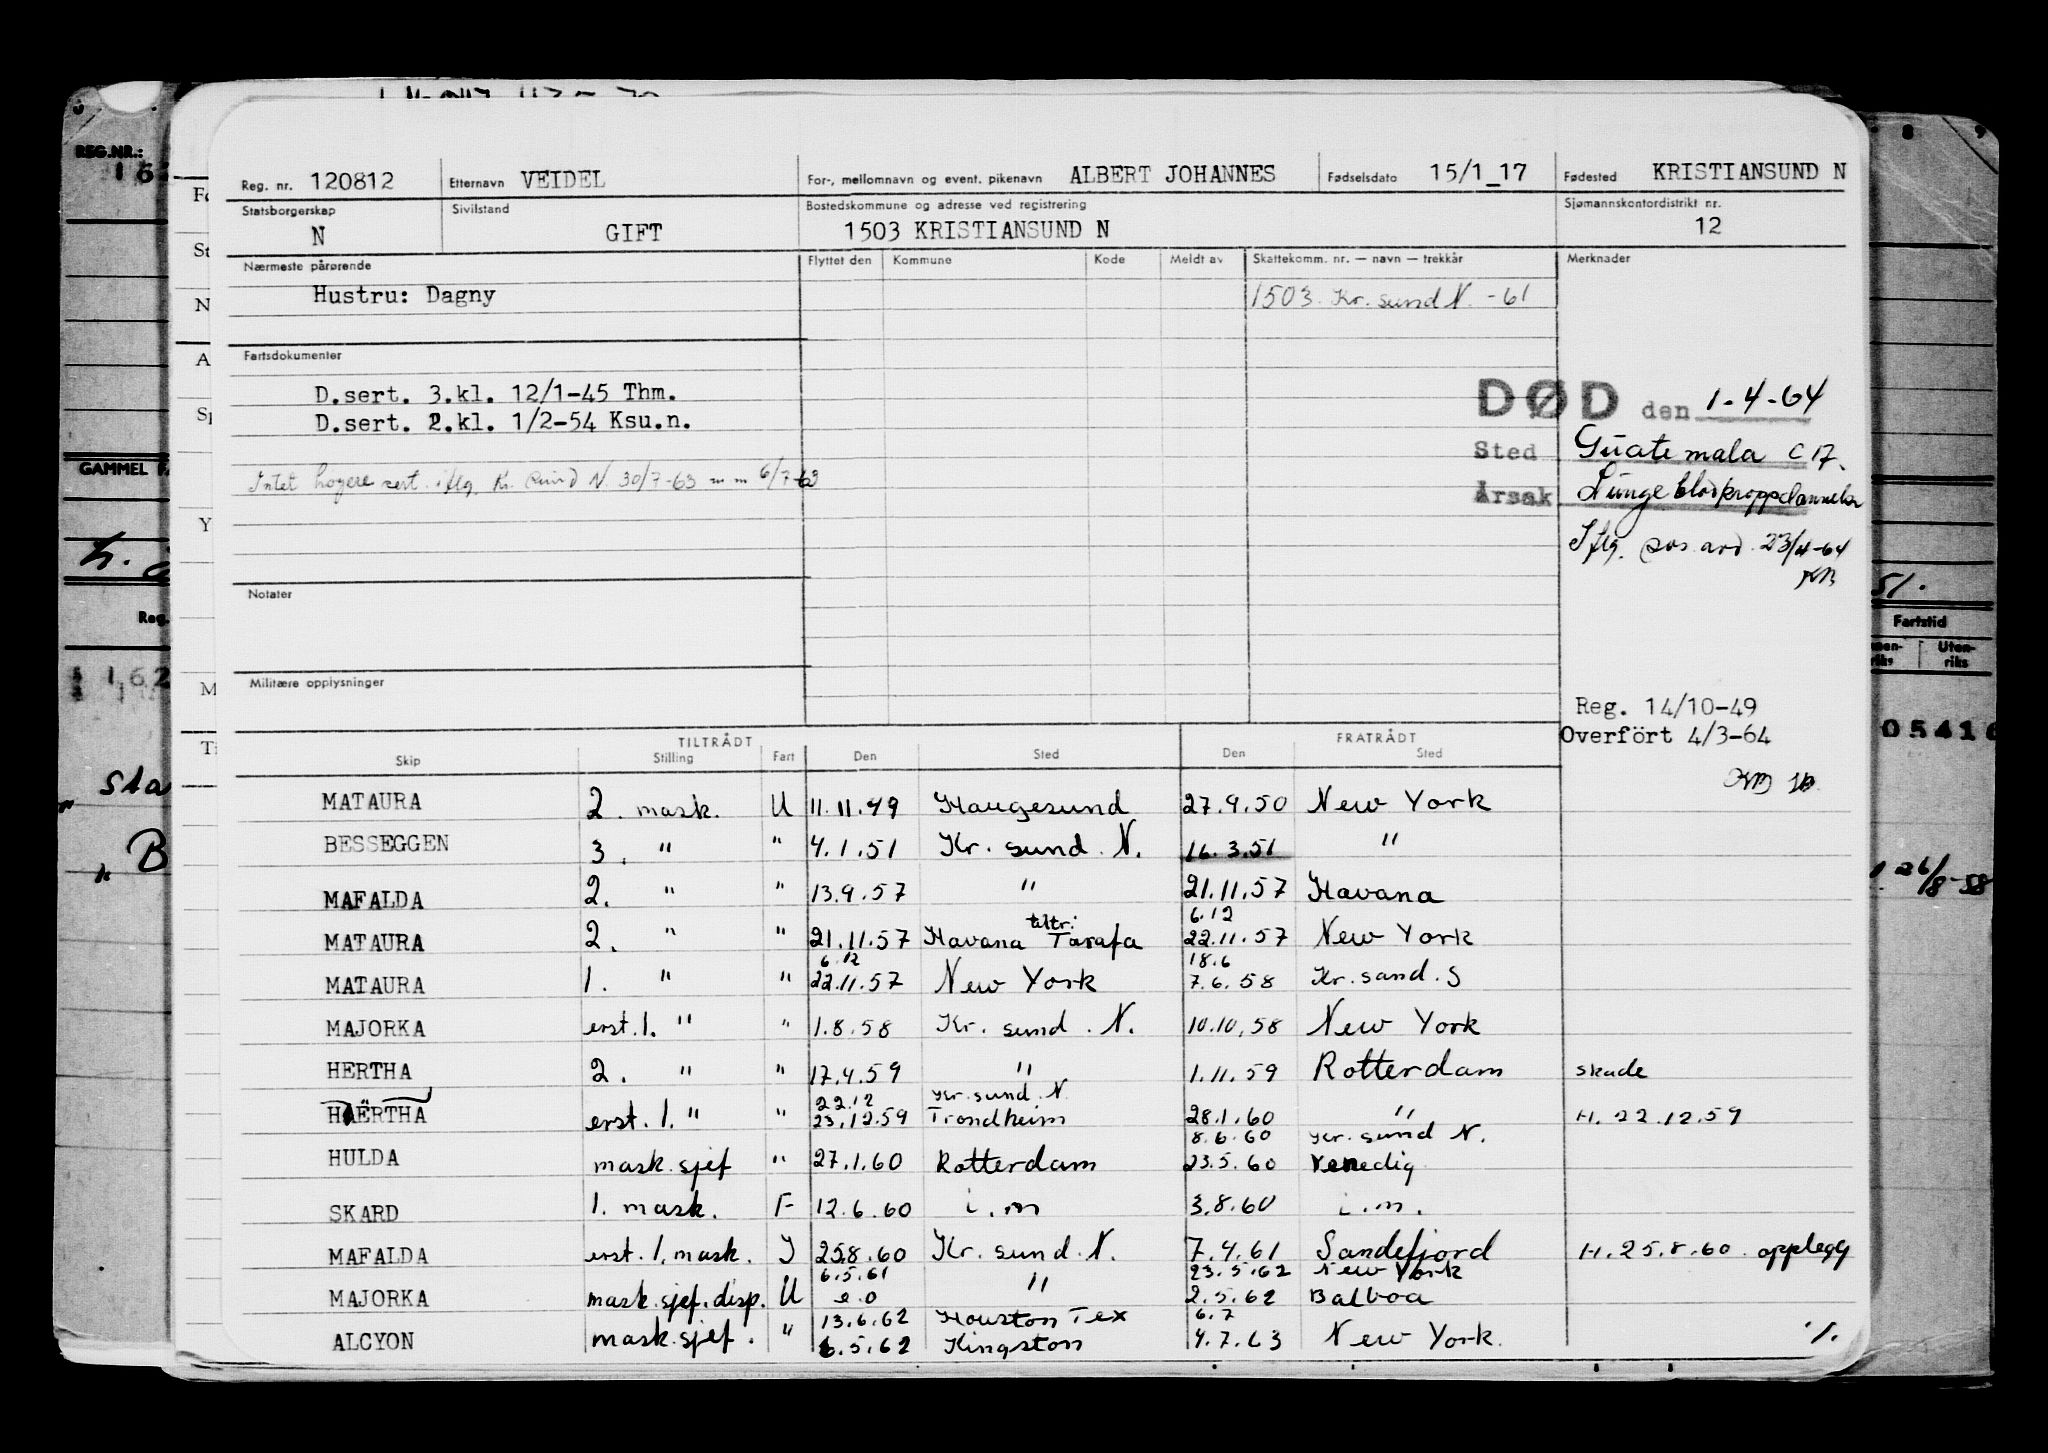 REG.NR.:
Reg. nr. 120812 Etternavn VEIDEL For-, mellomnavn og event. pikenavn ALBERT JOHANNES Fødselsdato 15/1_17 Fødested KRISTIANSUND N
Statsborgerskap Sivilstand Bostedskommune og adresse ved registrering Sjømannskontordistrikt nr.
N GIFT 1503 KRISTIANSUND N 12
Nærmeste pårørende Flyttet den Kommune Kode Meldt av Skattekomm. nr. — navn — trekkår Merknader
Hustru: Dagny 1503 Kr. sund N. -61
Fartsdokumenter
D.sert. 3.kl. 12/1-45 Thm.
D.sert. 2.kl. 1/2-54 Ksu.n.
DØD den 1-4-64
Sted Guatemala C 17.
Intet høyere sert. iflg. Kr. sund N. 30/7-63 " " 6/7-63
Årsak Lungeblodproppdannelse
Iflg. sos. avd. 23/4-64
KB
Notater
Militære opplysninger
Reg. 14/10-49
Overfört 4/3-64
TILTRÅDT FRATRÅDT
Skip Stilling Fart Den Sted Den Sted
MATAURA 2. mask. U 11.11.49 Haugesund 27.9.50 New York
BESSEGGEN 3. " " 4.1.51 Kr. sund. N. 16.3.51 "
MAFALDA 2. " " 13.9.57 " 21.11.57 Havana
tiltr. 6.12
MATAURA 2. " " 21.11.57 Havana Tarafa 22.11.57 New York
6.12 18.6
MATAURA 1. " " 22.11.57 New York 7.6.58 Kr. sand. S
MAJORKA erst. 1. " " 1.8.58 Kr. sund. N. 10.10.58 New York
HERTHA 2. " " 17.4.59 " 1.11.59 Rotterdam skade
22.12 Kr. sund. N.
HAËRTHA erst. 1. " " 23.12.59 Trondheim 28.1.60 " H. 22.12.59
8.6.60 Kr. sund N.
HULDA mask. sjef " 27.1.60 Rotterdam 23.5.60 Venedig
SKARD 1. mask. F 12.6.60 i.m 3.8.60 i.m.
MAFALDA erst. 1. mask. I 25.8.60 Kr. sund. N. 7.4.61 Sandefjord H. 25.8.60. opplegg
6.5.61 23.5.62 New York
MAJORKA mask. sjef. disp. U e.o " 2.5.62 Balboa
13.6.62 Houston Tex 6.7
ALCYON mask. sjef. " 6.5.62 Kingston 4.7.63 New York. ./.
GAMMEL
Fartstid
Uten-
riks
26/8-58